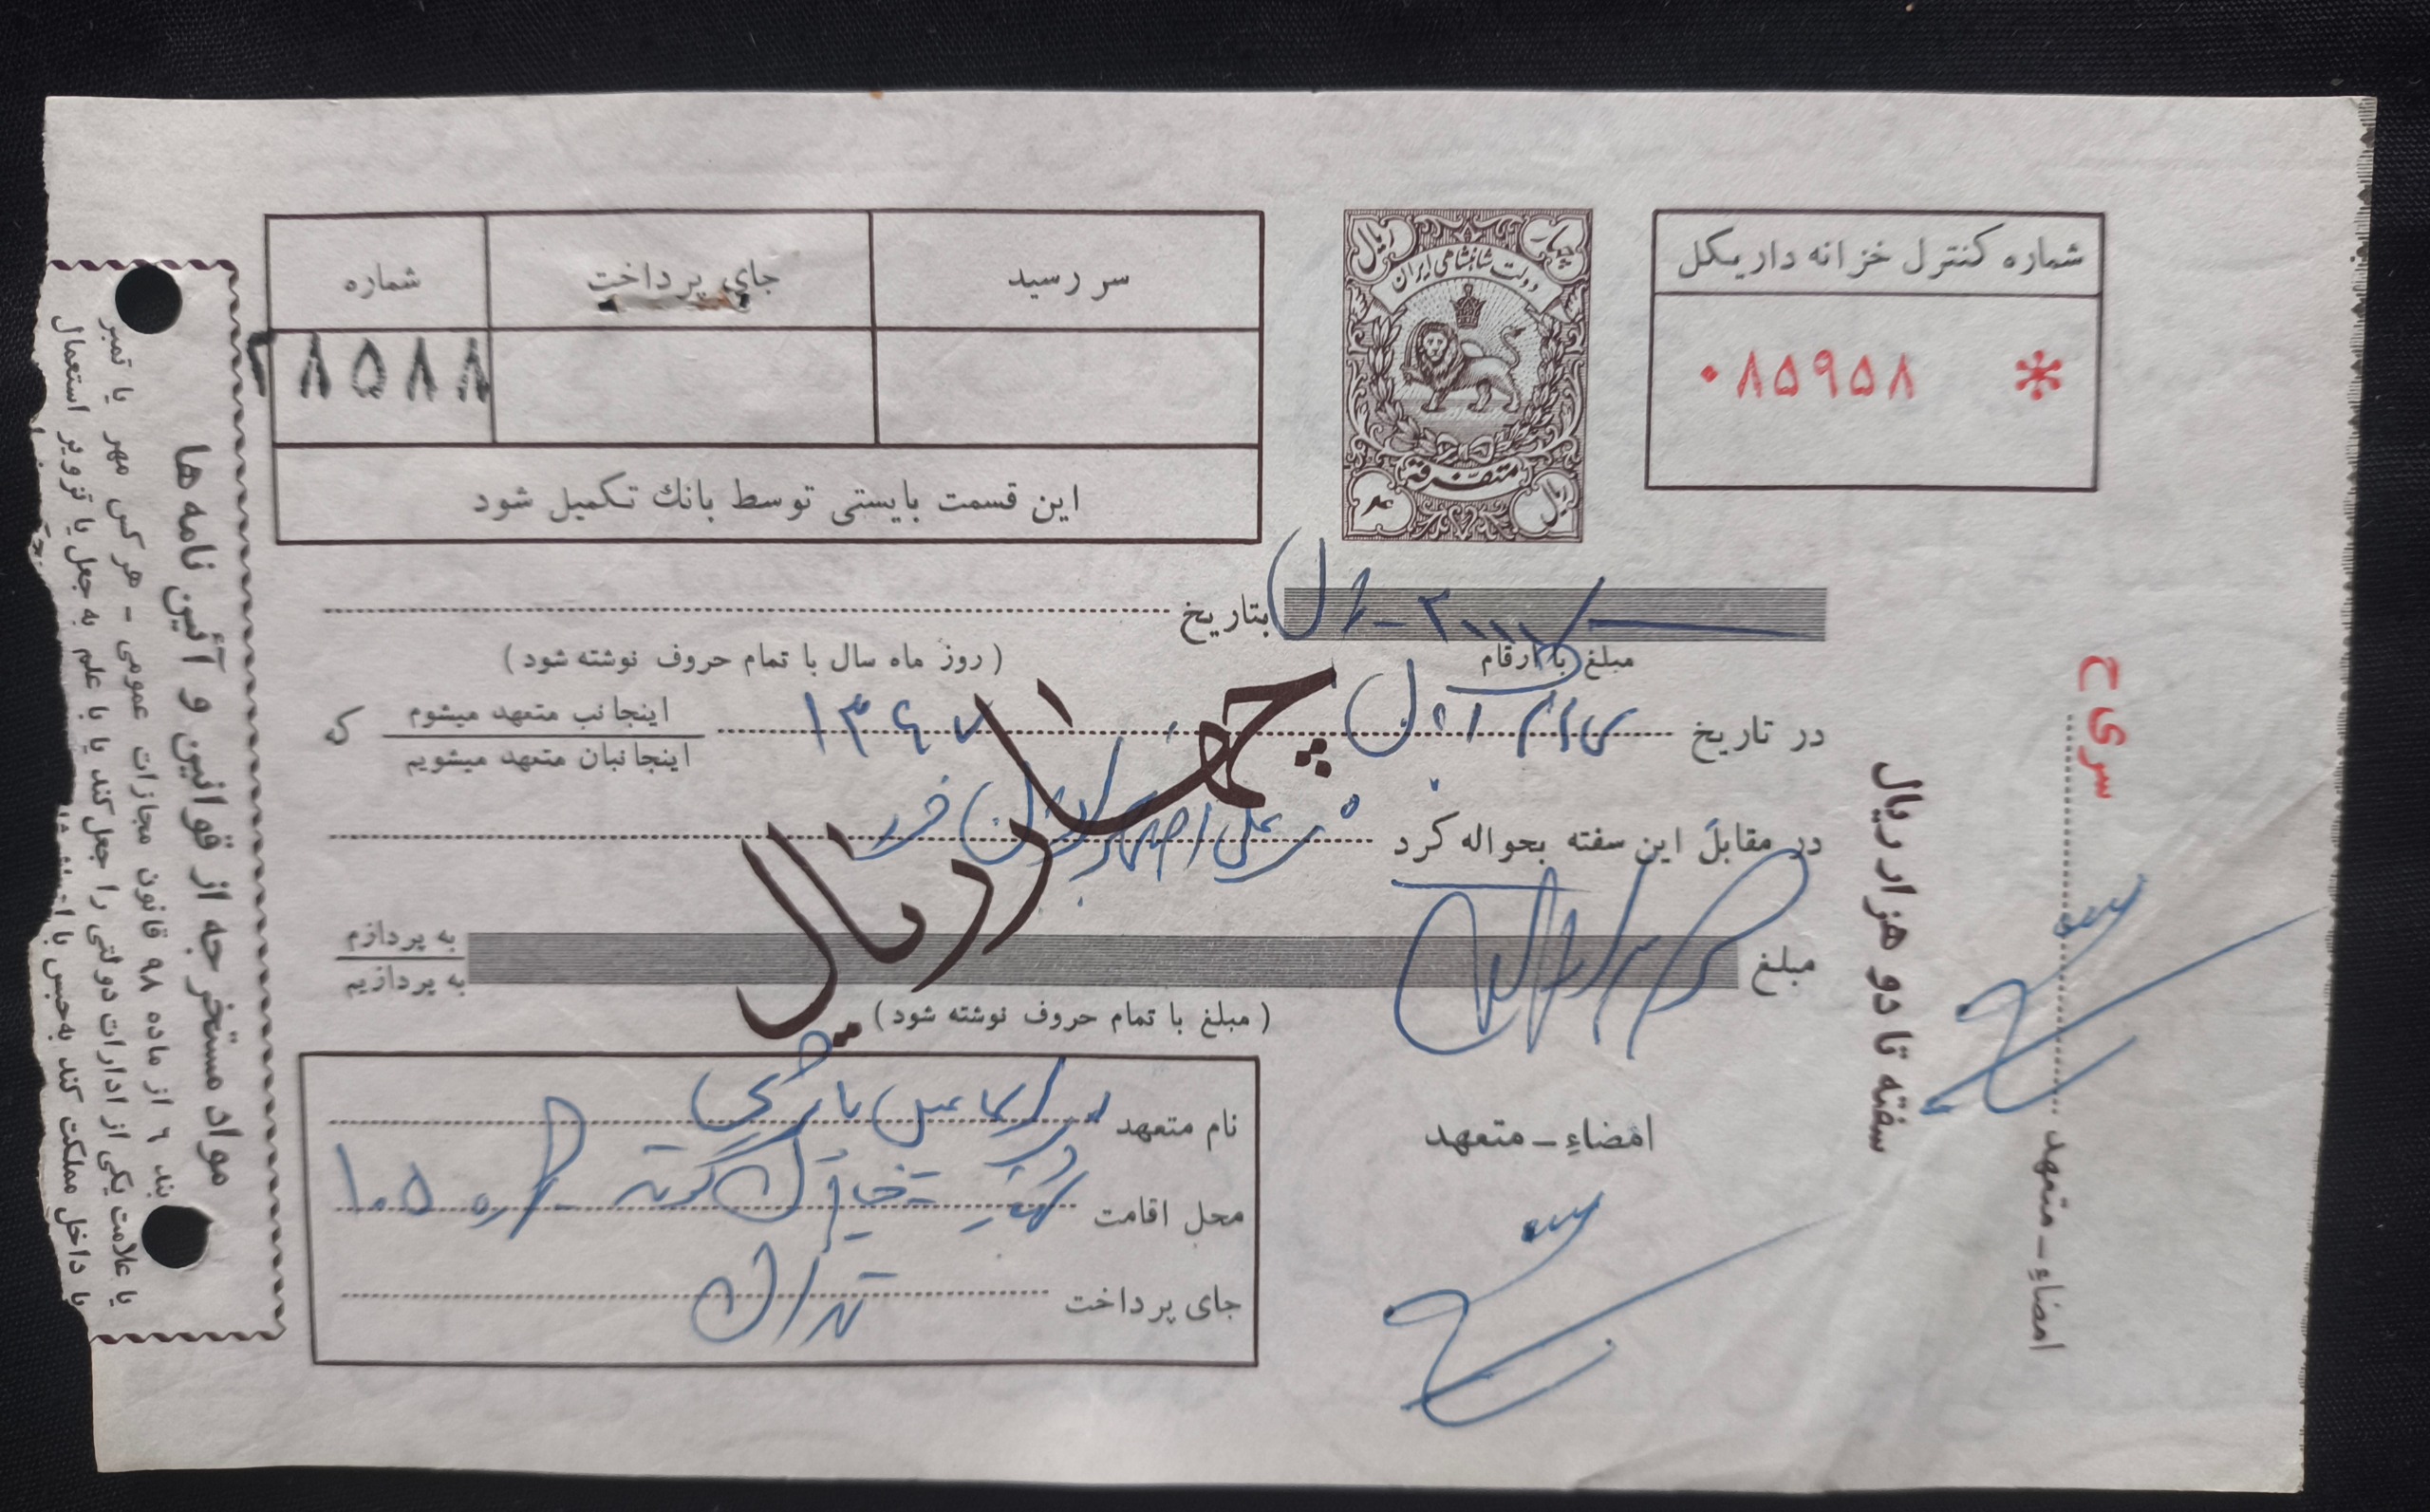 شماره کنترل خزانه داریکل
* ۰۸۵۹۵۸
چهار ریال
دولت شاهنشاهی ایران
متفرقه
۴ ریال
سر رسید
جای پرداخت
شماره
۲۸۵۸۸
این قسمت بایستی توسط بانك تکمیل شود
ریال
بتاریخ
مبلغ با ارقام
( روز ماه سال با تمام حروف نوشته شود )
در تاریخ سی ام آبان ۱۳۴۷
اینجانب متعهد میشوم
اینجانبان متعهد میشویم
که
چهار ریال
در مقابل این سفته بحواله کرد
مبلغ
به پردازم
به پردازیم
( مبلغ با تمام حروف نوشته شود )
نام متعهد اسماعیل
محل اقامت ۱۰۵
جای پرداخت تهران
امضاء ـ متعهد
سفته تا دو هزار ریال
سری ح
امضاء ـ متعهد
مواد مستخرجه از قوانین و آئین نامه ها
بند ٦ از ماده ۹۸ قانون مجازات عمومی - هر کس مهر یا تمبر
یا علامت یکی از ادارات دولتی را جعل کند یا با علم به جعل یا تزویر استعمال
یا داخل مملکت کند به حبس با